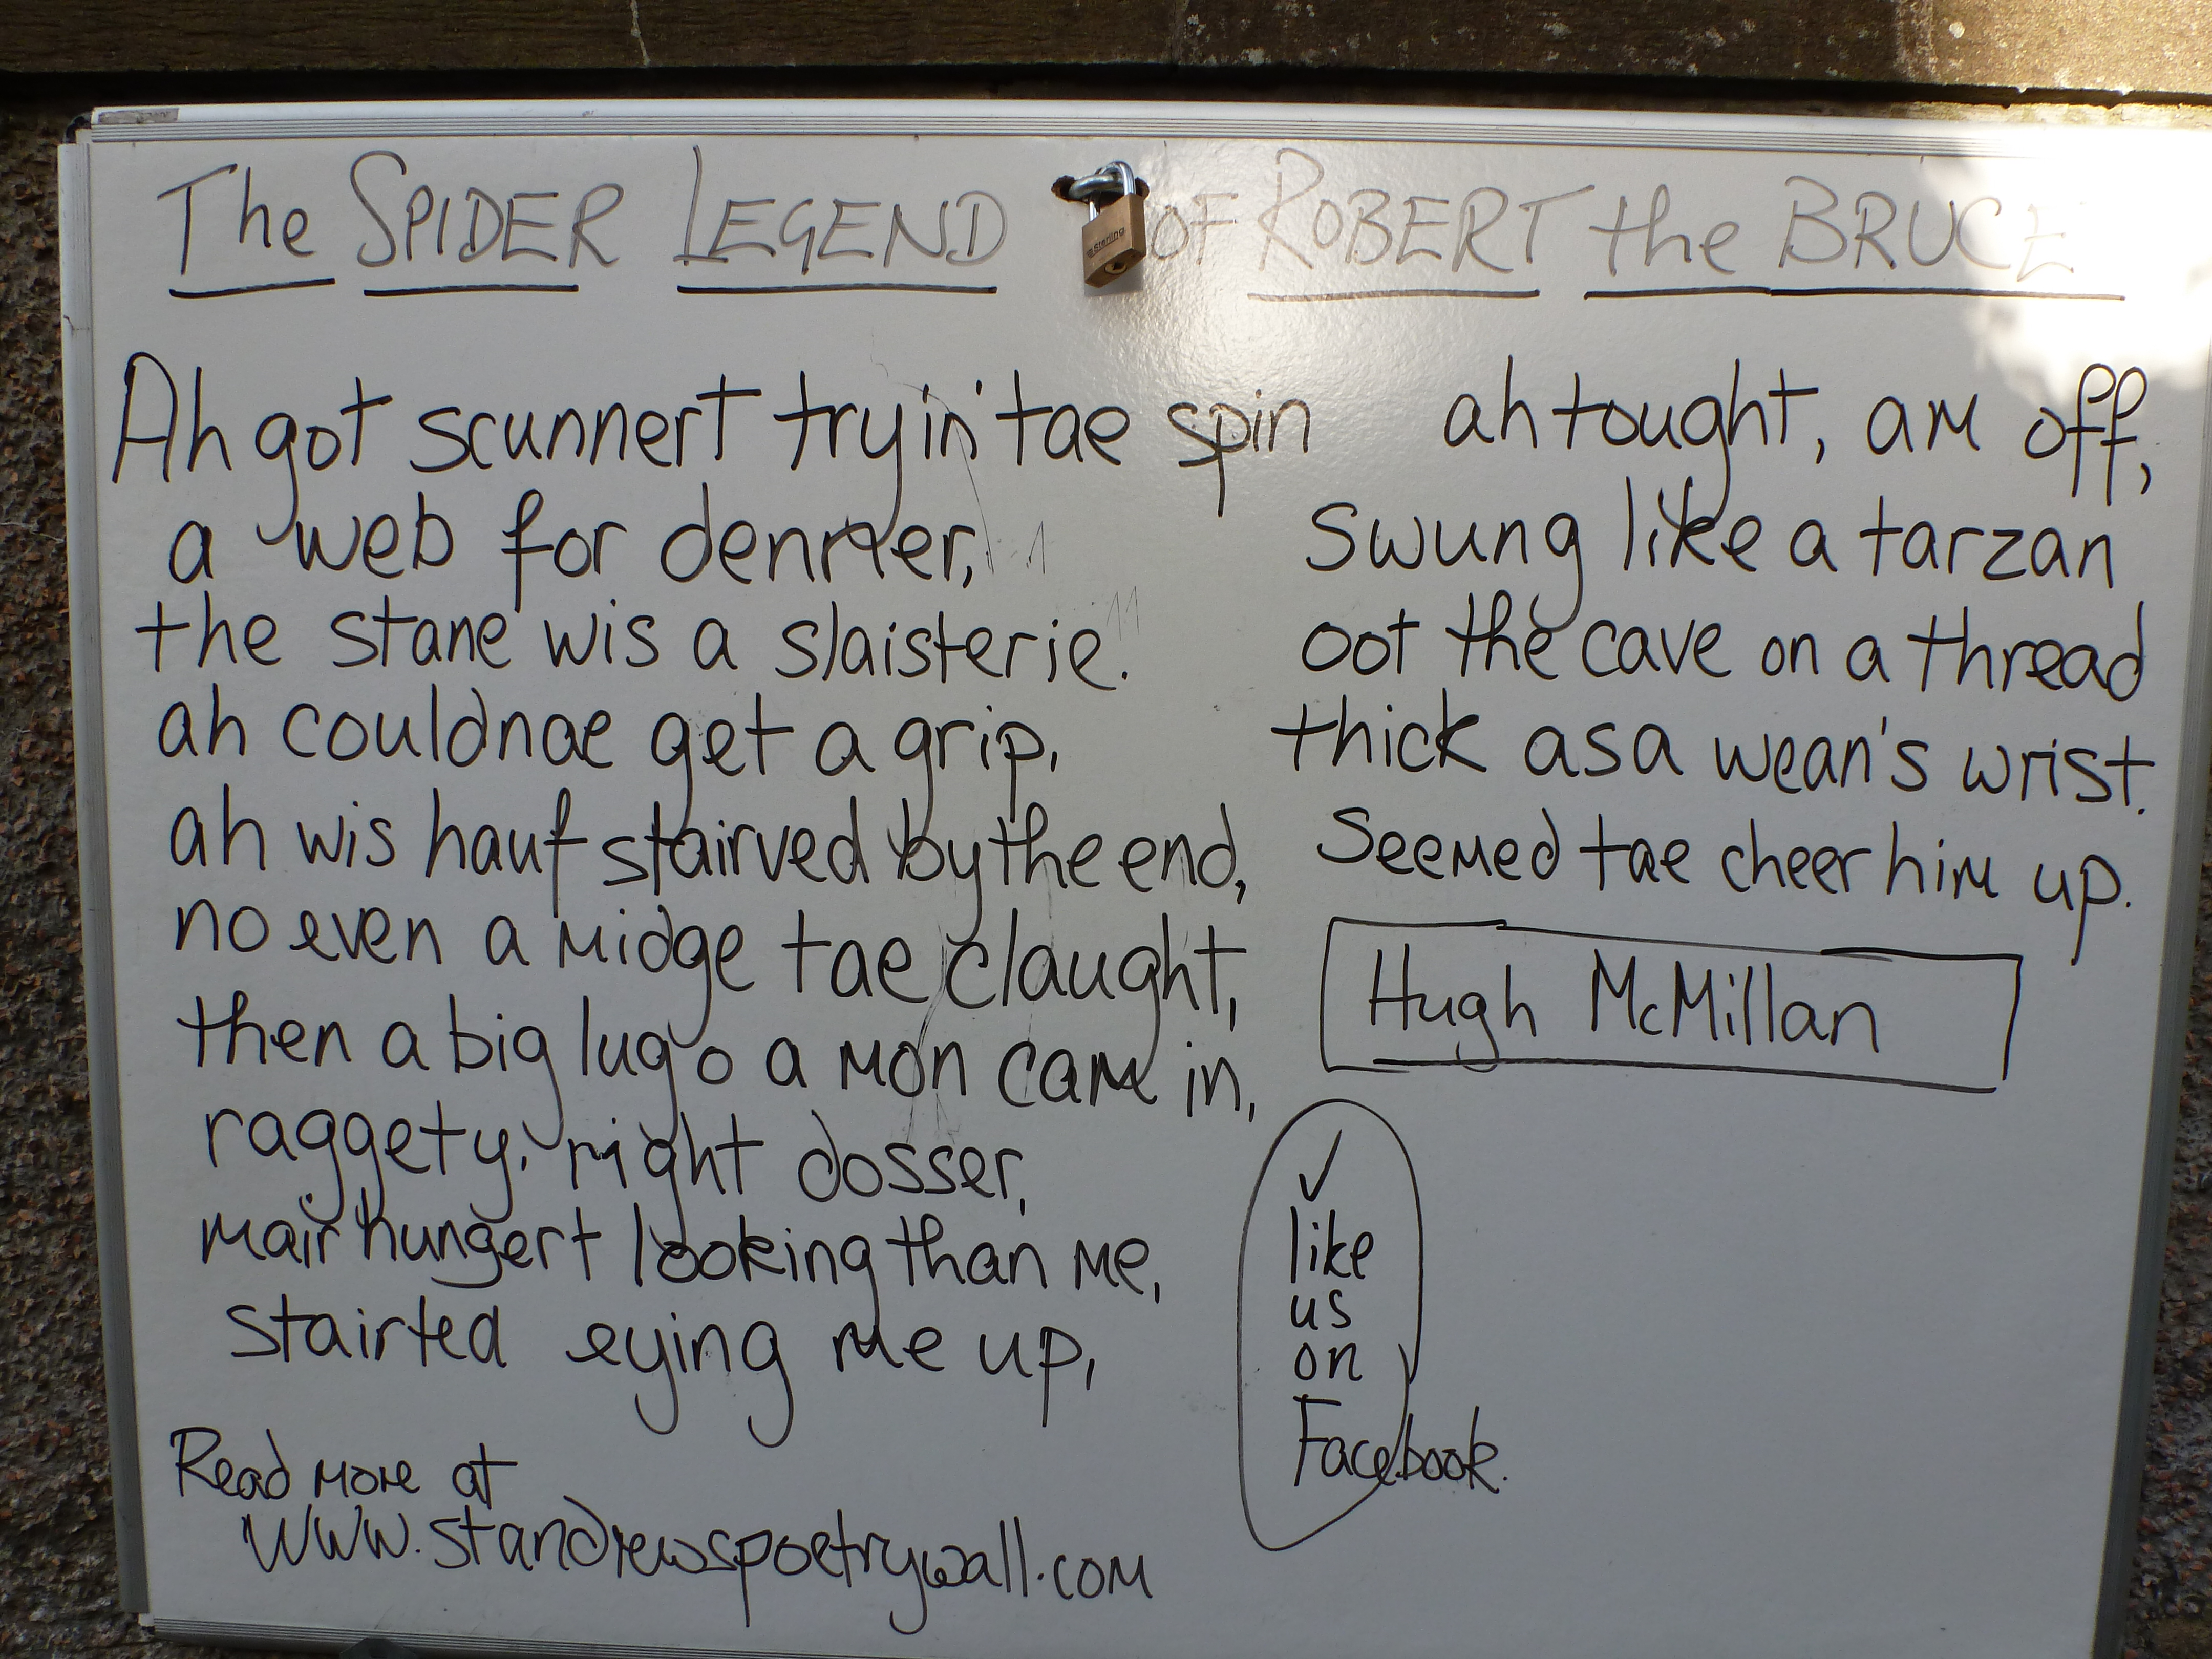 The SPIDER LEGEND OF ROBERT the BRUCE
Sterling
Ah got scunnert tryin' tae spin
a web for denner,
the stane wis a slaisterie.
ah couldnae get a grip,
ah wis hauf stairved by the end,
no even a midge tae claught,
then a big lug o a mon cam in,
raggety, right dosser,
mair hungert looking than me,
stairted eying me up,
ah tought, am off,
swung like a tarzan
oot the cave on a thread
thick as a wean's wrist.
Seemed tae cheer him up.
Hugh McMillan
✓
like
us
on
Facebook.
Read more at
www.standrewspoetrywall.com